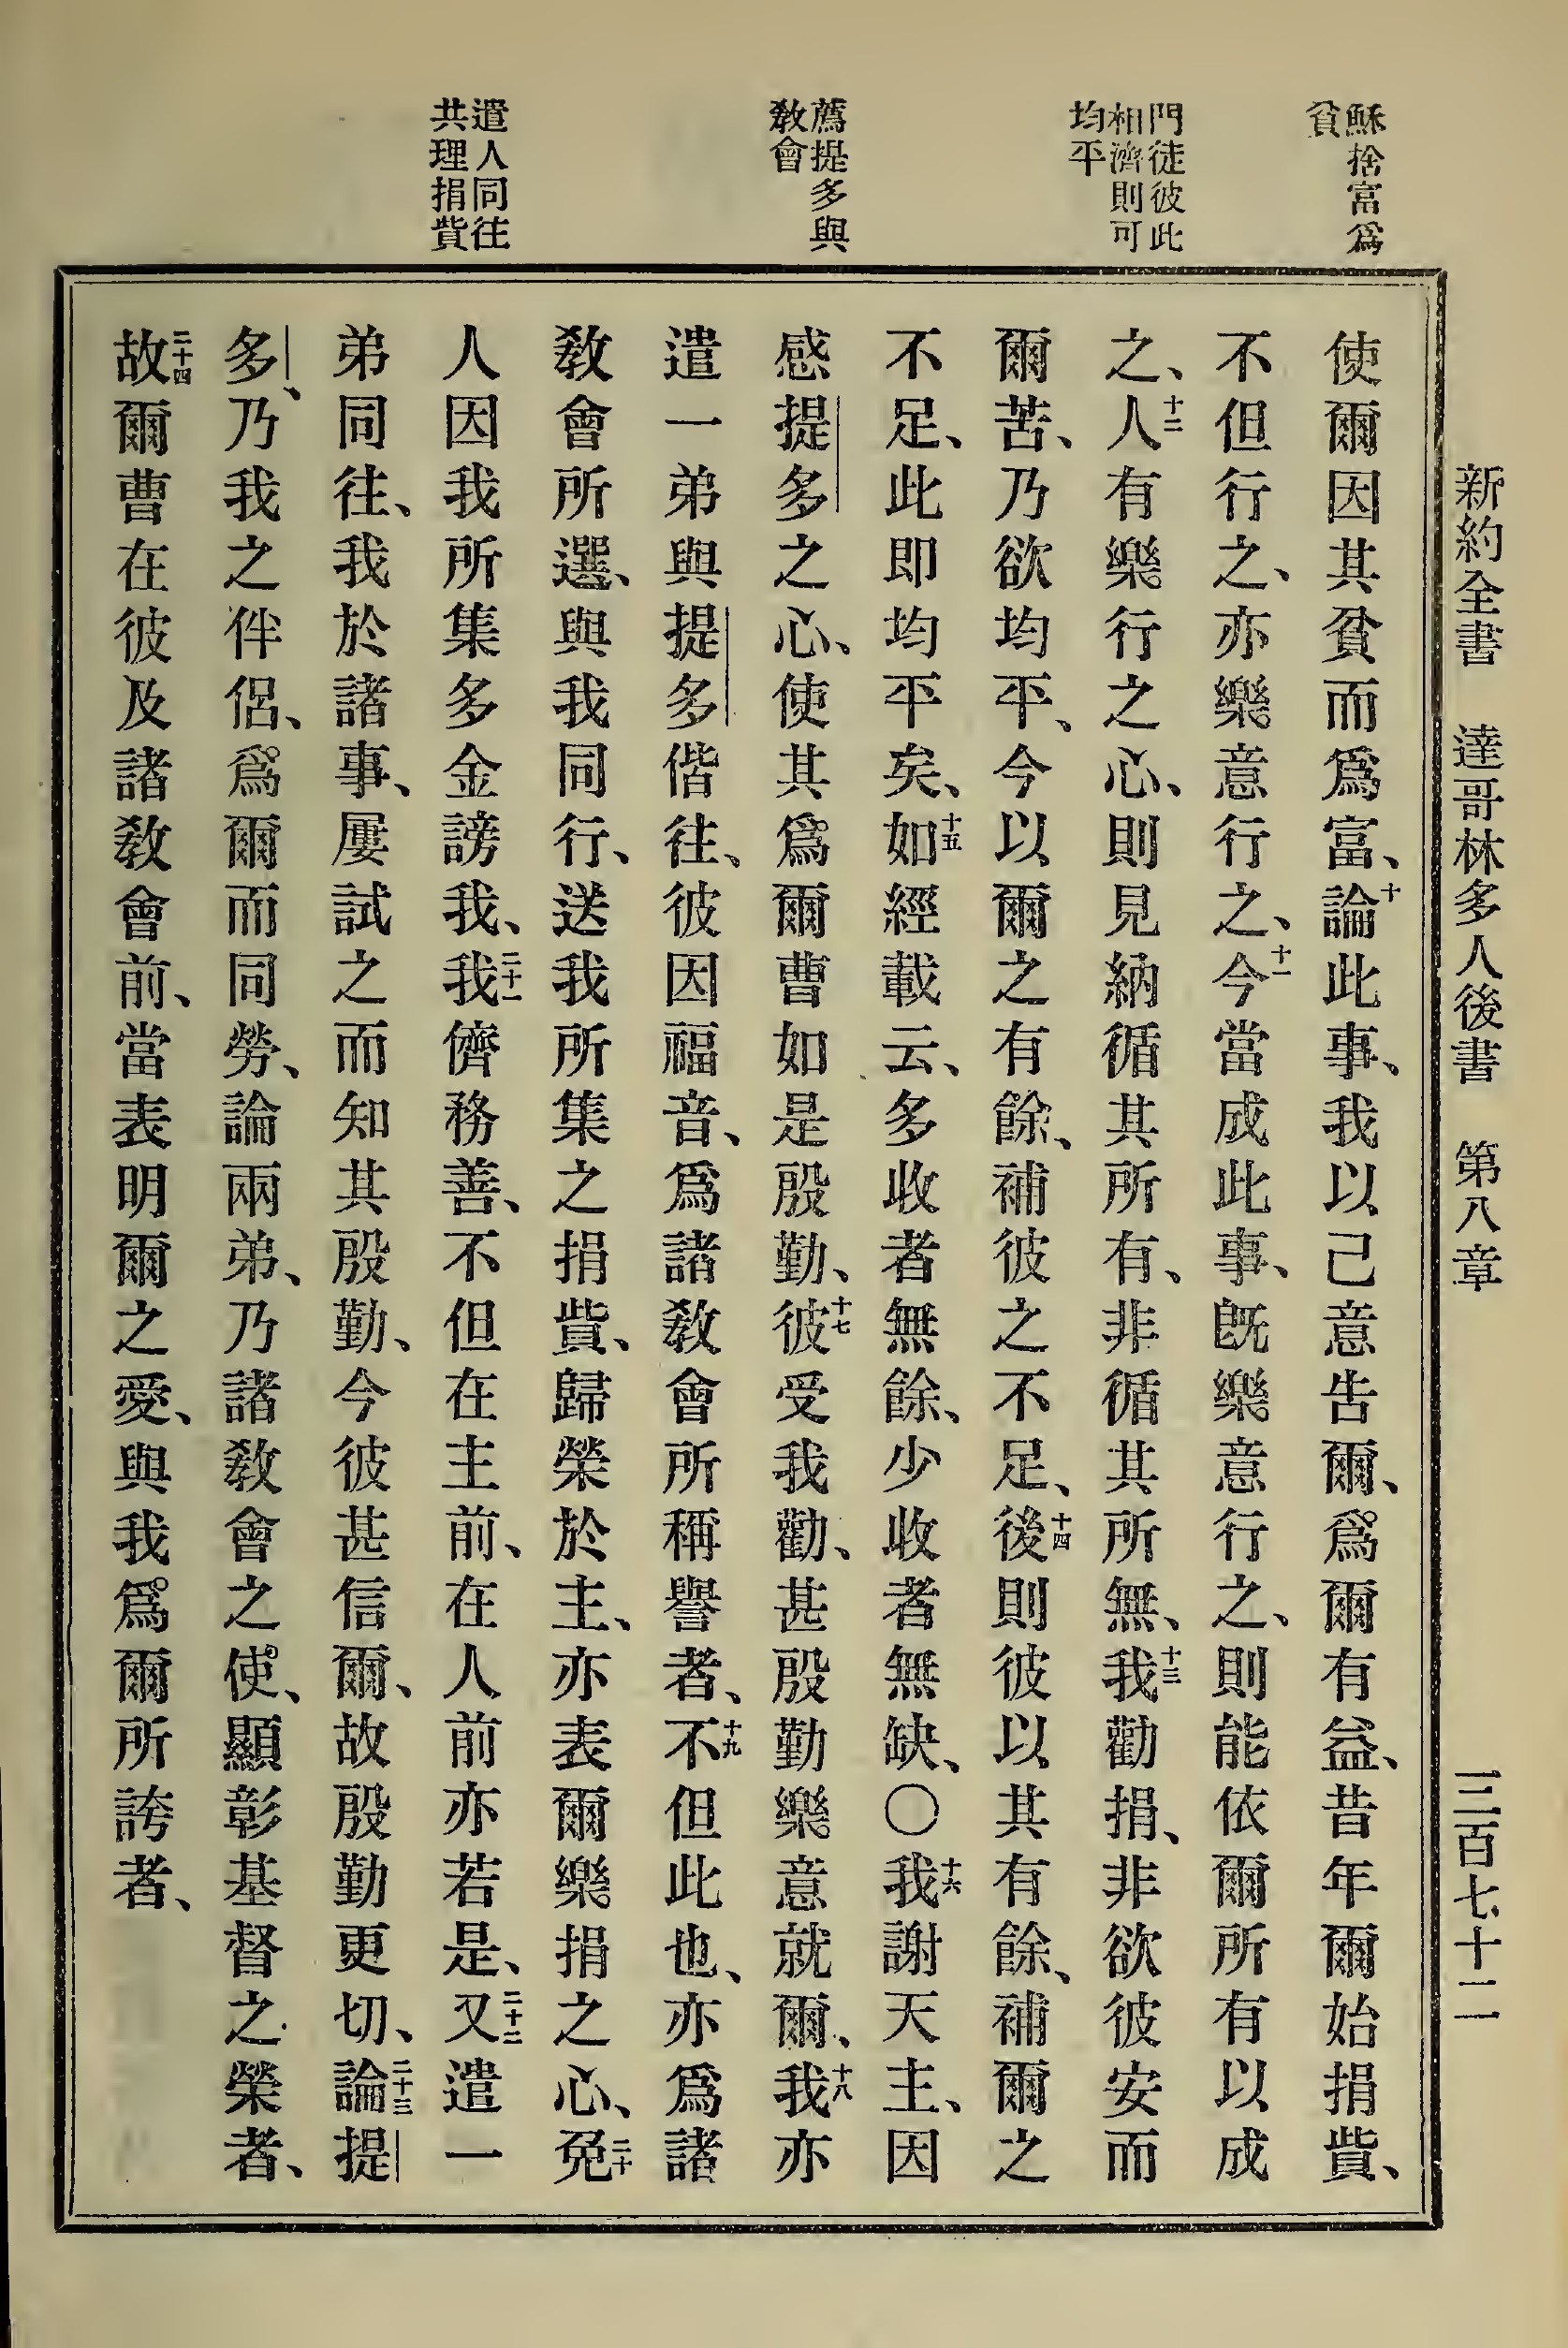 新約全書 達哥林多人後書 第八章 三百七十二
穌捨富爲
貧
門徒彼此
相濟則可
均平
薦提多與
敎會
遣人同往
共理捐貲
使爾因其貧而爲富、十論此事、我以己意告爾、爲爾有益、昔年爾始捐貲、
不但行之、亦樂意行之、十一今當成此事、旣樂意行之、則能依爾所有以成
之、十二人有樂行之心、則見納循其所有、非循其所無、十三我勸捐、非欲彼安而
爾苦、乃欲均平、今以爾之有餘、補彼之不足、十四後則彼以其有餘、補爾之
不足、此即均平矣、十五如經載云、多收者無餘、少收者無缺、○十六我謝天主、因
感提多之心、使其爲爾曹如是殷勤、十七彼受我勸、甚殷勤樂意就爾、十八我亦
遣一弟與提多偕往、彼因福音、爲諸敎會所稱譽者、十九不但此也、亦爲諸
敎會所選、與我同行、送我所集之捐貲、歸榮於主、亦表爾樂捐之心、二十免
人因我所集多金謗我、二十一我儕務善、不但在主前、在人前亦若是、二十二又遣一
弟同往、我於諸事、屢試之而知其殷勤、今彼甚信爾、故殷勤更切、二十三論提
多、乃我之伴侶、爲爾而同勞、論兩弟、乃諸敎會之使、顯彰基督之榮者、
二十四故爾曹在彼及諸敎會前、當表明爾之愛、與我爲爾所誇者、